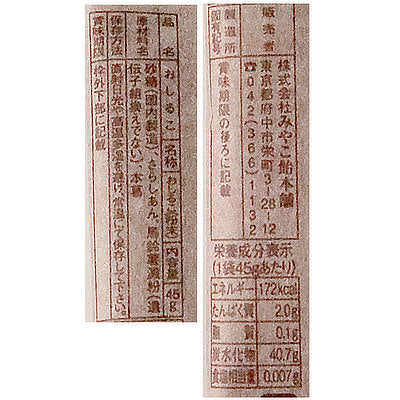 品名 おしるこ 名称 おしるこ(粉末) 内容量 45g
原材料名 砂糖(国内製造)、さらしあん、馬鈴薯澱粉(遺
伝子組換えでない)、本葛
保存方法 直射日光や高温多湿を避け、常温にて保存して下さい。
賞味期限 枠外下部に記載
販売者 株式会社みやこ飴本舗
東京都府中市栄町3-28-12
☎042(366)1132
製造所固有記号 賞味期限の後ろに記載
栄養成分表示
(1袋45gあたり)
エネルギー 172kcal
たんぱく質 2.0g
脂質 0.1g
炭水化物 40.7g
食塩相当量 0.007g